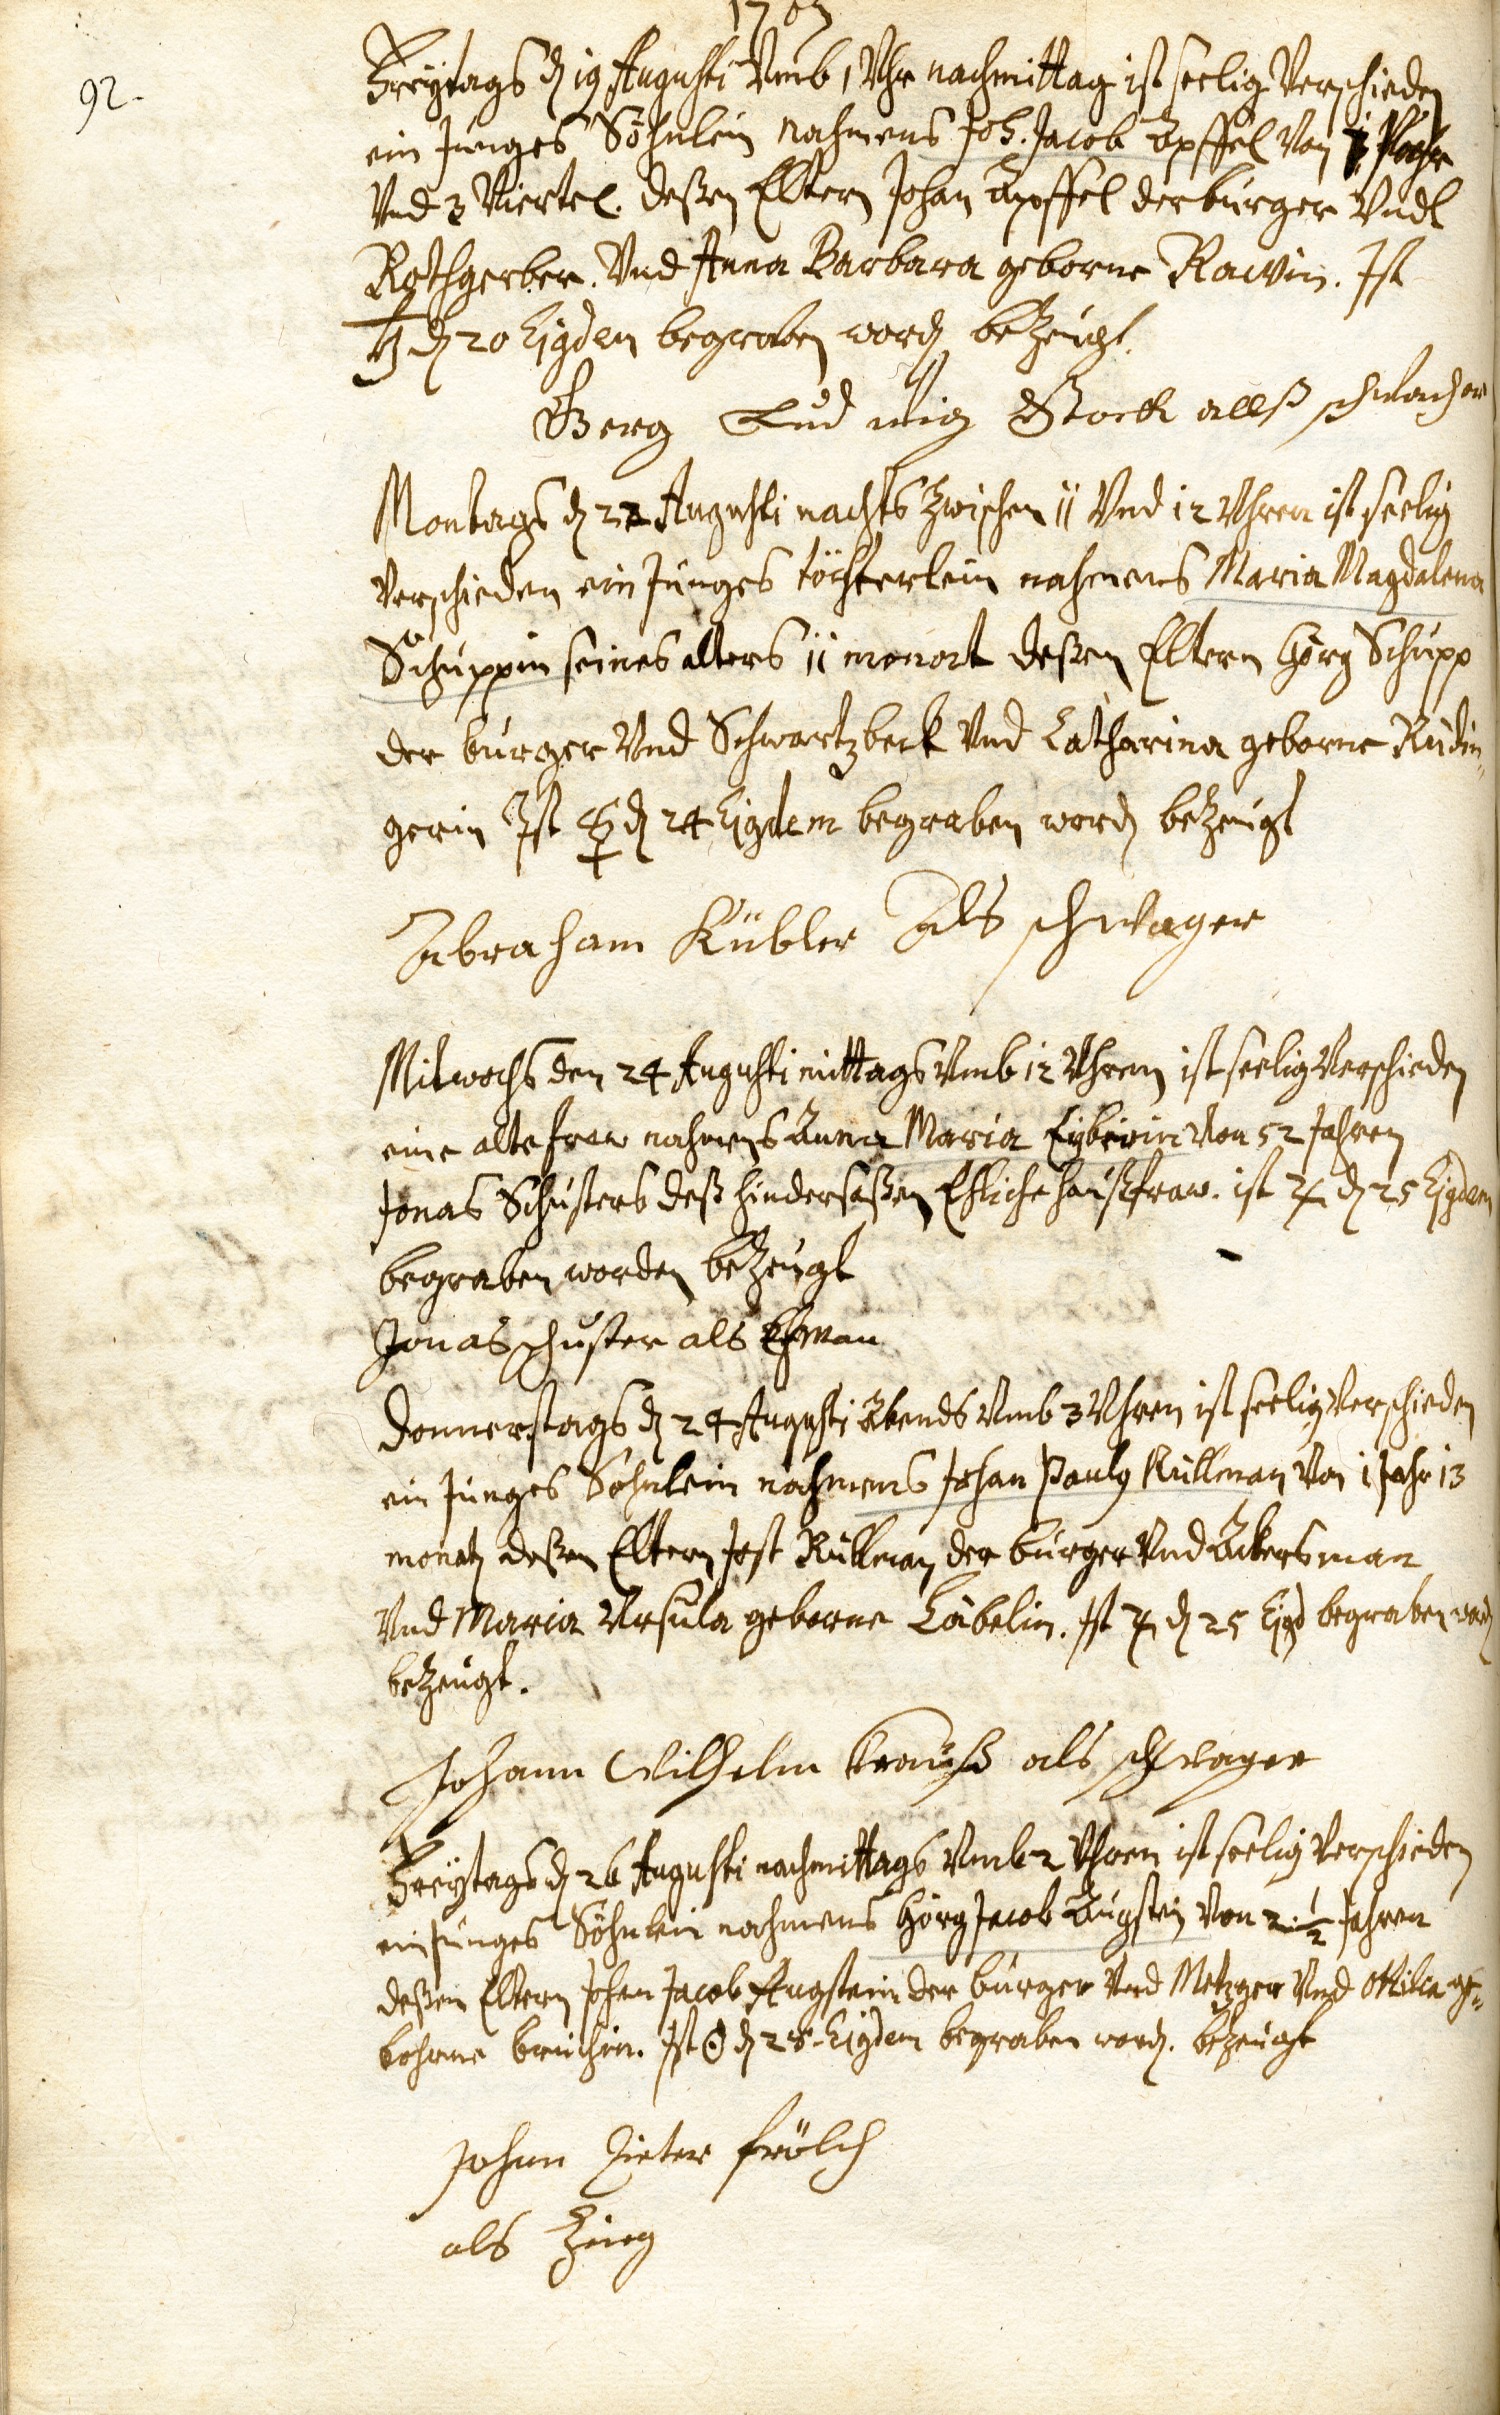 1707
92.
Freÿtags d 19 Augusti Vmb 1 Vhr nachmittag ist seelig Verschieden
ein Junges Söhnlein nahmens Joh. Jacob Äpffel Von
Vnd 3 Viertel. deßen Eltern Johan Äpffel der burger Vnd
Rothgerber. Vnd Anna Barbara geborne Rawin. Ist
♄ d 20 Ejgdem begraben word bezeugt.
Gerg Ludwig Stock allß schwacher
Montags d 22 Augusti nachts Zwischen 11 Vnd 12 Vhren ist seelig
Verschieden ein Junges töchterlein nahmens Maria Magdalena
Schuppin seines alters 11 monat deßen Eltern Görg Schupp
der burger Vnd Schwartzbeck Vnd Catharina geborne Rüdin"
gerin Ist ☿ d 24 Ejgdem begraben word bezeugt
Abraham Kübler Als schwager
Mitwochs den 24 Augusti mittags Vmb 12 Vhren ist seelig Verschieden
eine alte fraw nahmens Anna Maria Von 52 Jahren
Jonas Schusters deß hindersaßen Ehliche haußfraw. ist ♃ d 25 Ejgdem
begraben worden bezeugt
Jonas schuster als Ehman
Donnerstags d 24 Augusti Abends Vmb 3 Vhren ist seelig Verschieden
ein Junges Söhnlein nahmens Johan Pauly Küllman Von 1 Jahr 13
monat deßen Eltern Jost Küllman der burger Vnd Ackersman
Vnd Maria Vrsula geborne Läbelin. Ist ♃ d 25 Ejgd begraben word
bezeugt.
Johann Wilhelm Krauß als schwager
Freÿtags d 26 Augusti nachmittags Vmb 2 Vhren ist seelig Verschieden
ein Junges Söhnlein nahmens Görg Jacob Augstein Von 2 1/2 Jahren
deßen Eltern Johan Jacob Augstein der burger Vnd Metzger Vnd Ottilia ge"
bohrne. Ist ☉ d 28 Ejgdem begraben word. bezeugt
Johan Pieter frölch
als Zeug